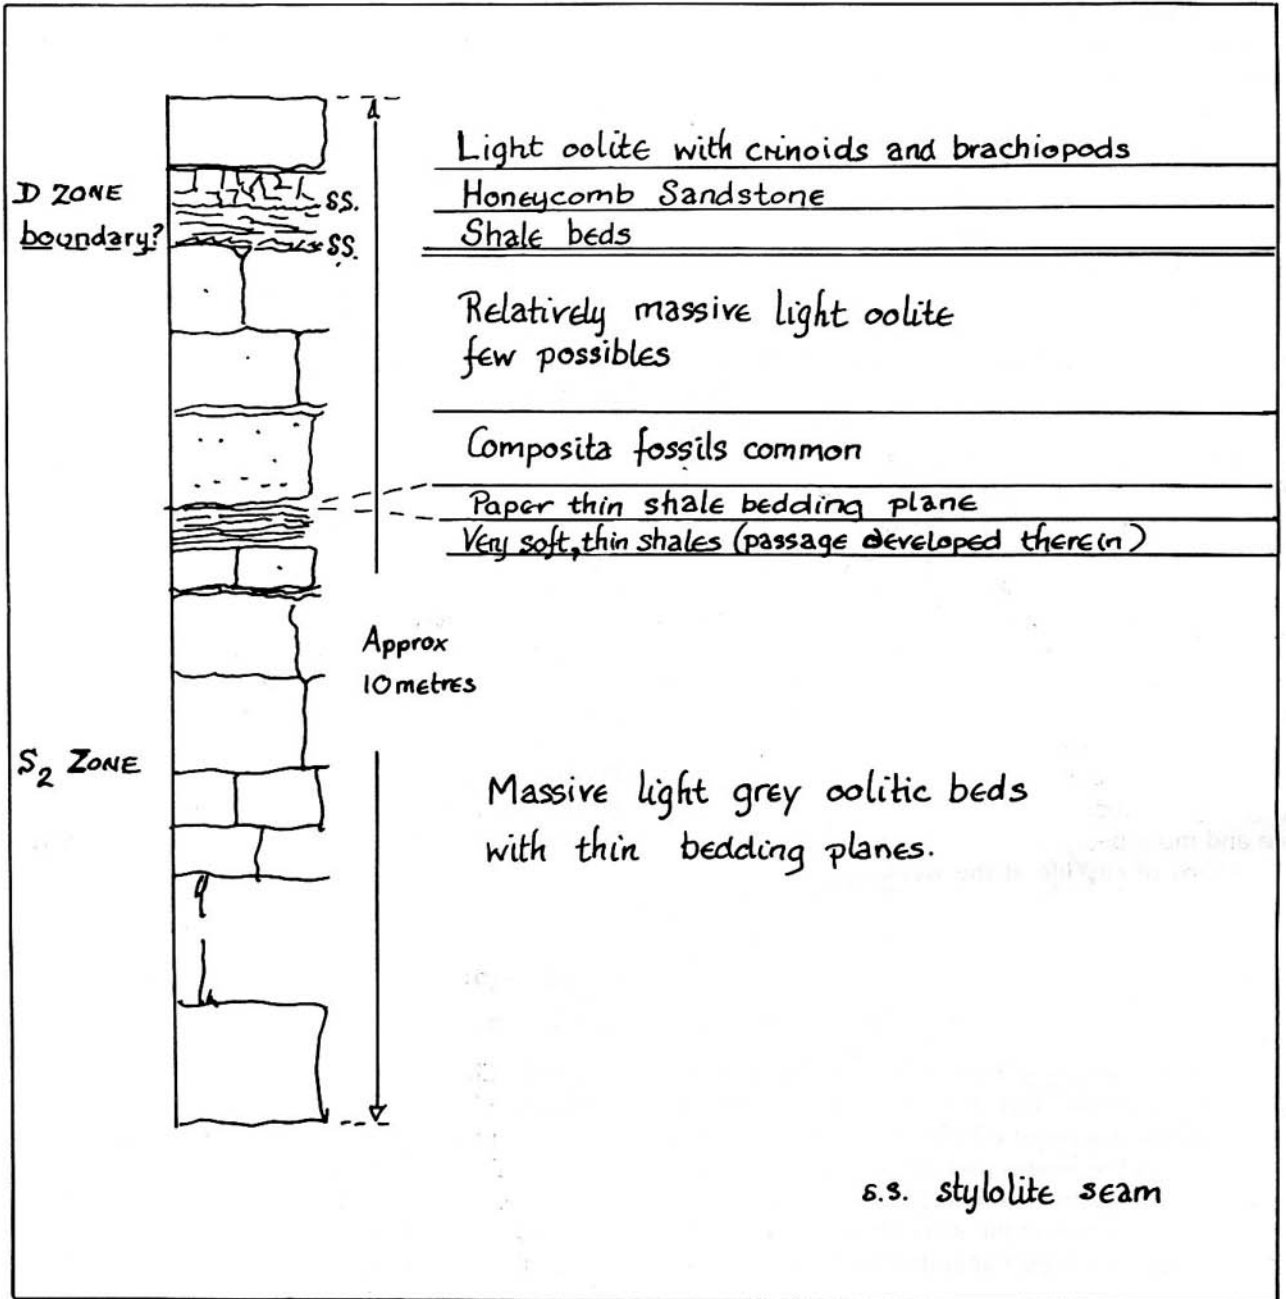 Light oolite with crinoids and brachiopods
D ZONE
boundary?
s.s.
Honeycomb Sandstone
s.s.
Shale beds
Relatively massive light oolite
few possibles
Composita fossils common
Paper thin shale bedding plane
Very soft, thin shales (passage developed therein)
Approx
10 metres
S₂ ZONE
Massive light grey oolitic beds
with thin bedding planes.
s.s. stylolite seam